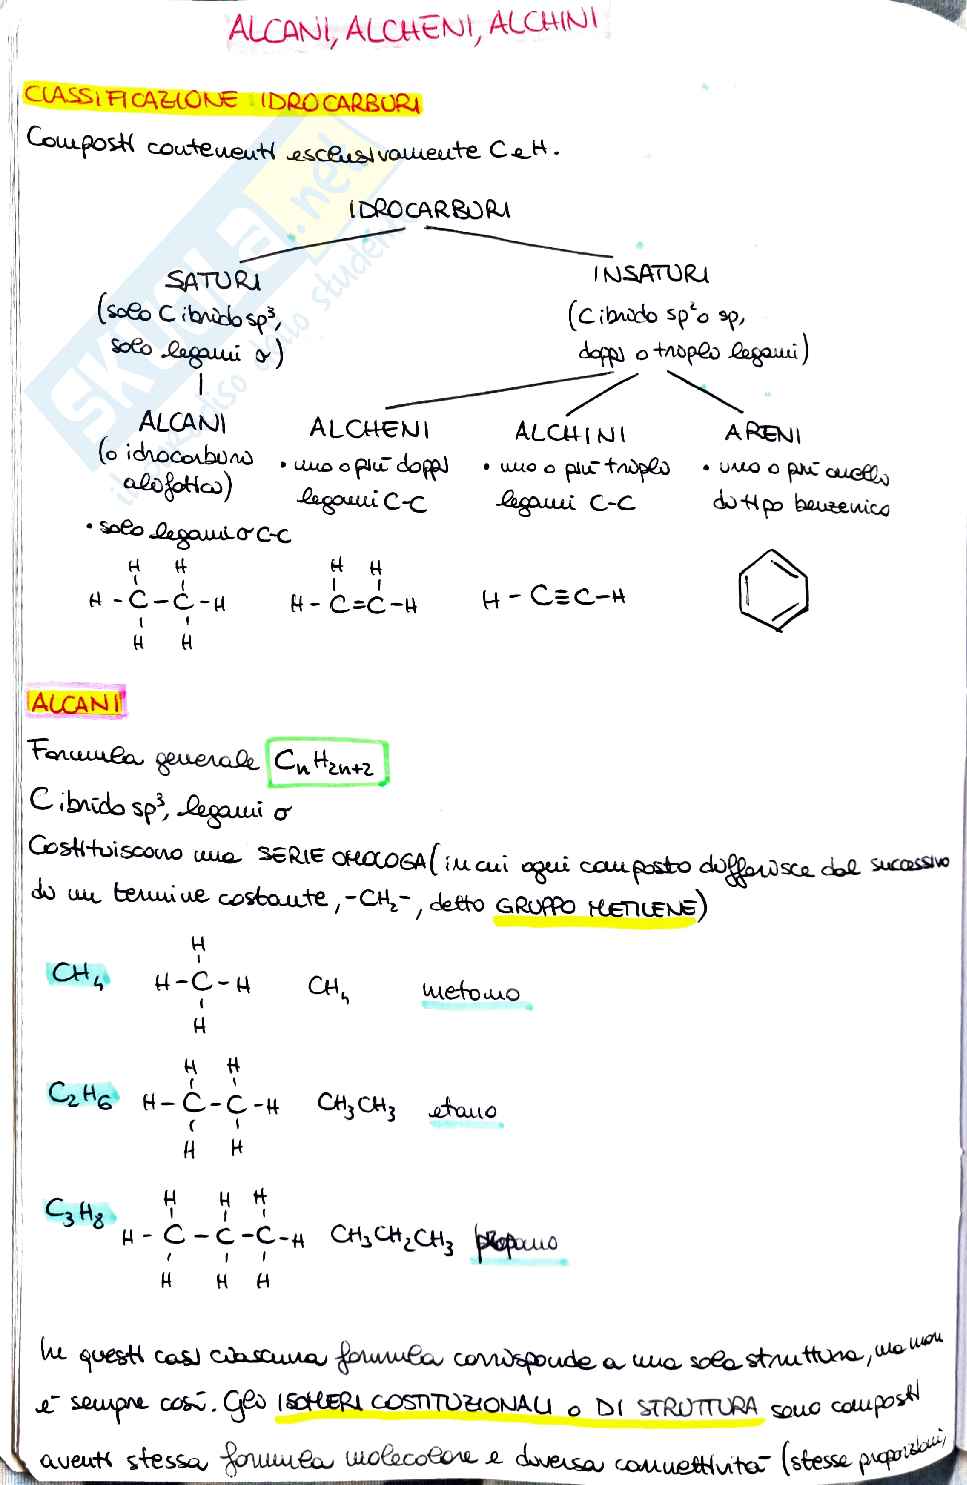 ALCANI, ALCHENI, ALCHINI
CLASSIFICAZIONE IDROCARBURI
Composti contenenti esclusivamente C e H.
IDROCARBURI
SATURI
(solo C ibrido sp³,
solo legami σ)
INSATURI
(C ibrido sp² o sp,
doppi o triplo legami)
ALCANI
(o idrocarburo
alifatico)
• solo legami σ C-C
ALCHENI
• uno o più doppi
legami C-C
ALCHINI
• uno o più triplo
legami C-C
ARENI
• uno o più anello
di tipo benzenico
H H
H - C - C - H
H H
H H
H - C = C - H
H - C ≡ C - H
ALCANI
Formula generale CnH2n+2
C ibrido sp³, legami σ
Costituiscono una SERIE OMOLOGA (in cui ogni composto differisce dal successivo
di un termine costante, -CH₂-, detto GRUPPO METILENE)
H
CH₄ H - C - H CH₄ metano
H
H H
C₂H₆ H - C - C - H CH₃CH₃ etano
H H
H H H
C₃H₈ H - C - C - C - H CH₃CH₂CH₃ propano
H H H
In questi casi ciascuna formula corrisponde a una sola struttura, ma non
è sempre così. Gli ISOMERI COSTITUZIONALI o DI STRUTTURA sono composti
aventi stessa formula molecolare e diversa connettività (stesse proporzioni,
SKUOLA.net
il paradiso dello studente